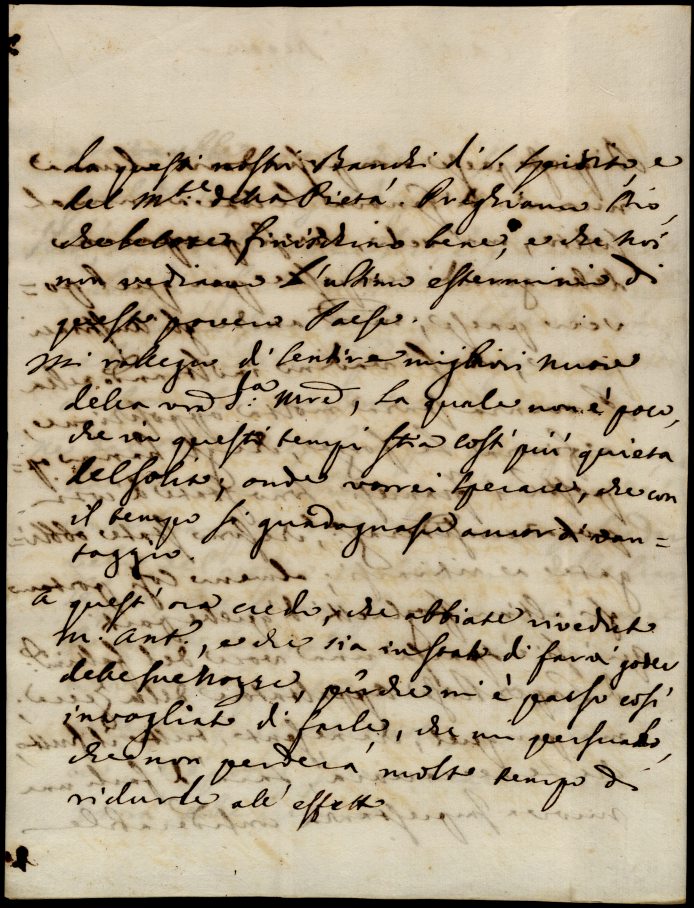 da questi nostri Banchi di S. Spirito, e
del M.te della Pietà. Preghiamo Dio,
che le cose finischino bene, e che noi
non vediamo l'ultimo esterminio di
questo povero Paese.
Mi rallegro di sentire migliori nuove
della vrã S.ra Mrẽ, la quale non è poco,
che in questi tempi stia così più quieta
del solito; onde vorrei sperare, che con
il tempo si guadagnasse ancor di van=
taggio.
A quest'ora credo, che abbiate riveduto
M. Ant.o, e che sia in stato di farvi goder
delle sue Nozze, perche mi è parso così
invogliato di farle, che mi persuado,
che non perderà molto tempo di
ridurle all'effetto